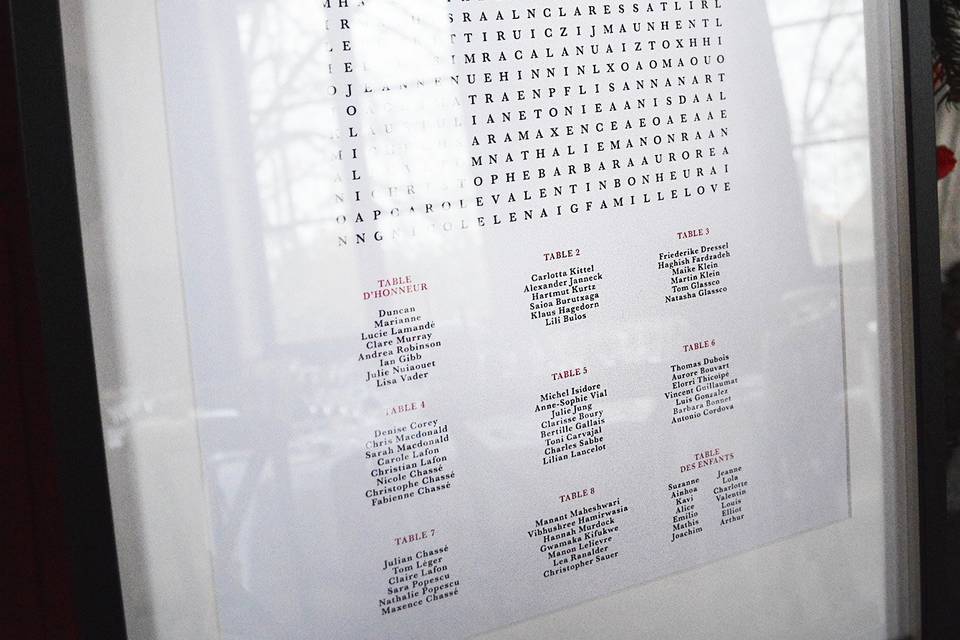 S R A A L N C L A R E S S A T L I R L
T T I R U I C Z I J M A U N H E N T L
I M R A C A L A N U A I Z T O X H H I
O J L E A N N E N U E H I N N I N L X O A O M A O U O
T R A E N P F L I S A N N A N A R T
I A N E T O N I E A A N I S D A A L
A R A M A X E N C E A E O A E A A E
M N A T H A L I E M A N O N R A A N
O P H E B A R B A R A A U R O R E A
O A P C A R O L E V A L E N T I N B O N H E U R A I
N N G N I C O L E L E N A I G F A M I L L E L O V E
TABLE D'HONNEUR
Duncan
Marianne
Lucie Lamandé
Clare Murray
Andrea Robinson
Ian Gibb
Julie Nuiaouet
Lisa Vader
TABLE 2
Carlotta Kittel
Alexander Janneck
Hartmut Kurtz
Saioa Burutxaga
Klaus Hagedorn
Lili Bulos
TABLE 3
Friederike Dressel
Haghish Fardzadeh
Maike Klein
Martin Klein
Tom Glassco
Natasha Glassco
TABLE 4
Denise Corey
Chris Macdonald
Sarah Macdonald
Carole Lafon
Christian Lafon
Nicole Chassé
Christophe Chassé
Fabienne Chassé
TABLE 5
Michel Isidore
Anne-Sophie Vial
Julie Jung
Clarisse Boury
Bertille Gallais
Toni Carvajal
Charles Sabbe
Lilian Lancelot
TABLE 6
Thomas Dubois
Aurore Bouvart
Elorri Thicoipé
Vincent Guillaumat
Luis Gonzalez
Barbara Bonnet
Antonio Cordova
TABLE 7
Julian Chassé
Tom Léger
Claire Lafon
Sara Popescu
Nathalie Popescu
Maxence Chassé
TABLE 8
Manant Maheshwari
Vibhushree Hamirwasia
Hannah Murdock
Gwamaka Kifukwe
Manon Lelievre
Lea Ranalder
Christopher Sauer
TABLE
DES ENFANTS
Suzanne
Ainhoa
Kavi
Alice
Emilio
Mathis
Joachim
Jeanne
Lola
Charlotte
Valentin
Louis
Elliot
Arthur